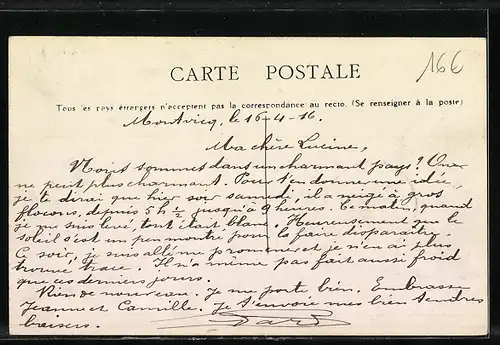 16€
CARTE POSTALE
Tous les pays étrangers n'acceptent pas la correspondance au recto. (Se renseigner à la poste)
Montvicq, le 16-4-16.
Ma chère Lucine,
Nous sommes dans un charmant pays ? On
ne peut plus charmant. Pour t'en donner une idée,
je te dirai que hier soir samedi, il a neigé à gros
flocons, depuis 5h ½ jusqu'à 9 heures. Ce matin, quand
je me suis levé, tout était blanc. Heureusement que le
soleil s'est un peu montré pour la faire disparaître.
Ce soir, je suis allé me promener et je n'en ai plus
trouvé trace. Il n'a même pas fait aussi froid
que ces derniers jours.
Rien de nouveau. Je me porte bien. Embrasse
Jeanne et Camille. Je t'envoie mes bien tendres
baisers.